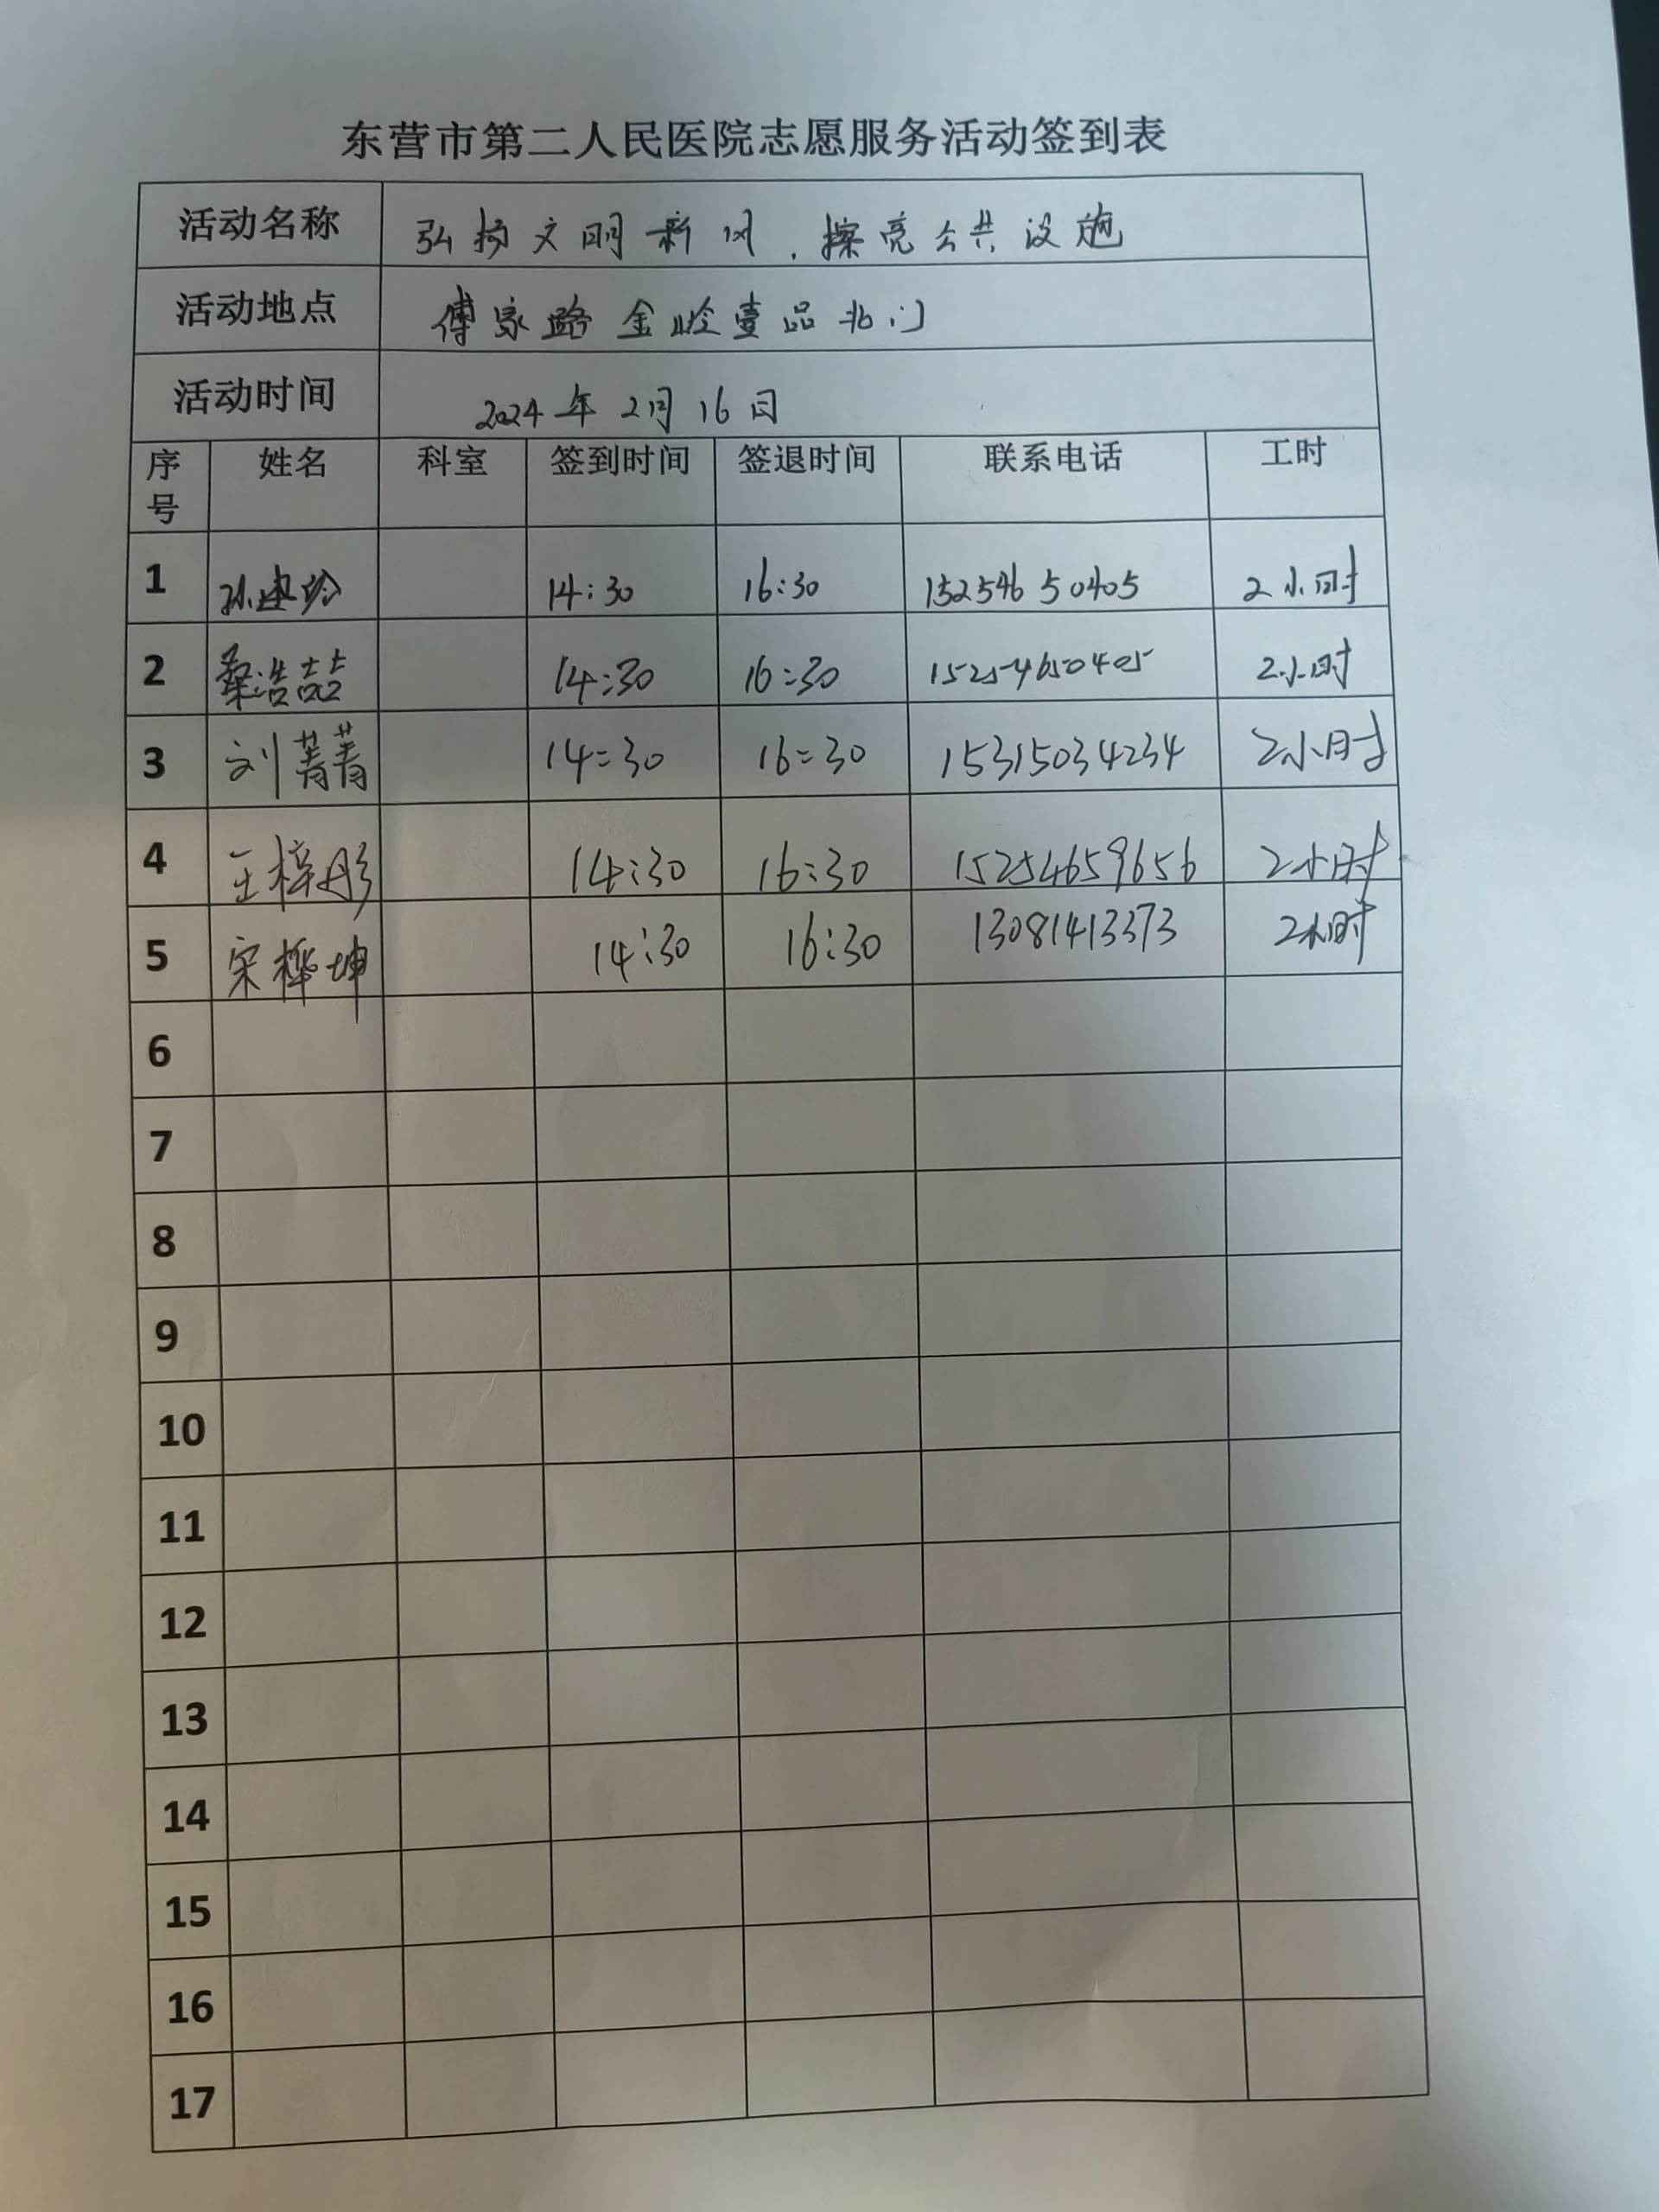 东营市第二人民医院志愿服务活动签到表
活动名称 弘扬文明新风，擦亮公共设施
活动地点 傅家路金岭壹品北门
活动时间 2024年2月16日
序号 姓名 科室 签到时间 签退时间 联系电话 工时
1 孙建玲 14:30 16:30 15254650405 2小时
2 桑浩喆 14:30 16:30 15254650405 2小时
3 刘菁菁 14:30 16:30 15315034234 2小时
4 王梓彤 14:30 16:30 15254659656 2小时
5 宋桦坤 14:30 16:30 13081413373 2小时
6
7
8
9
10
11
12
13
14
15
16
17